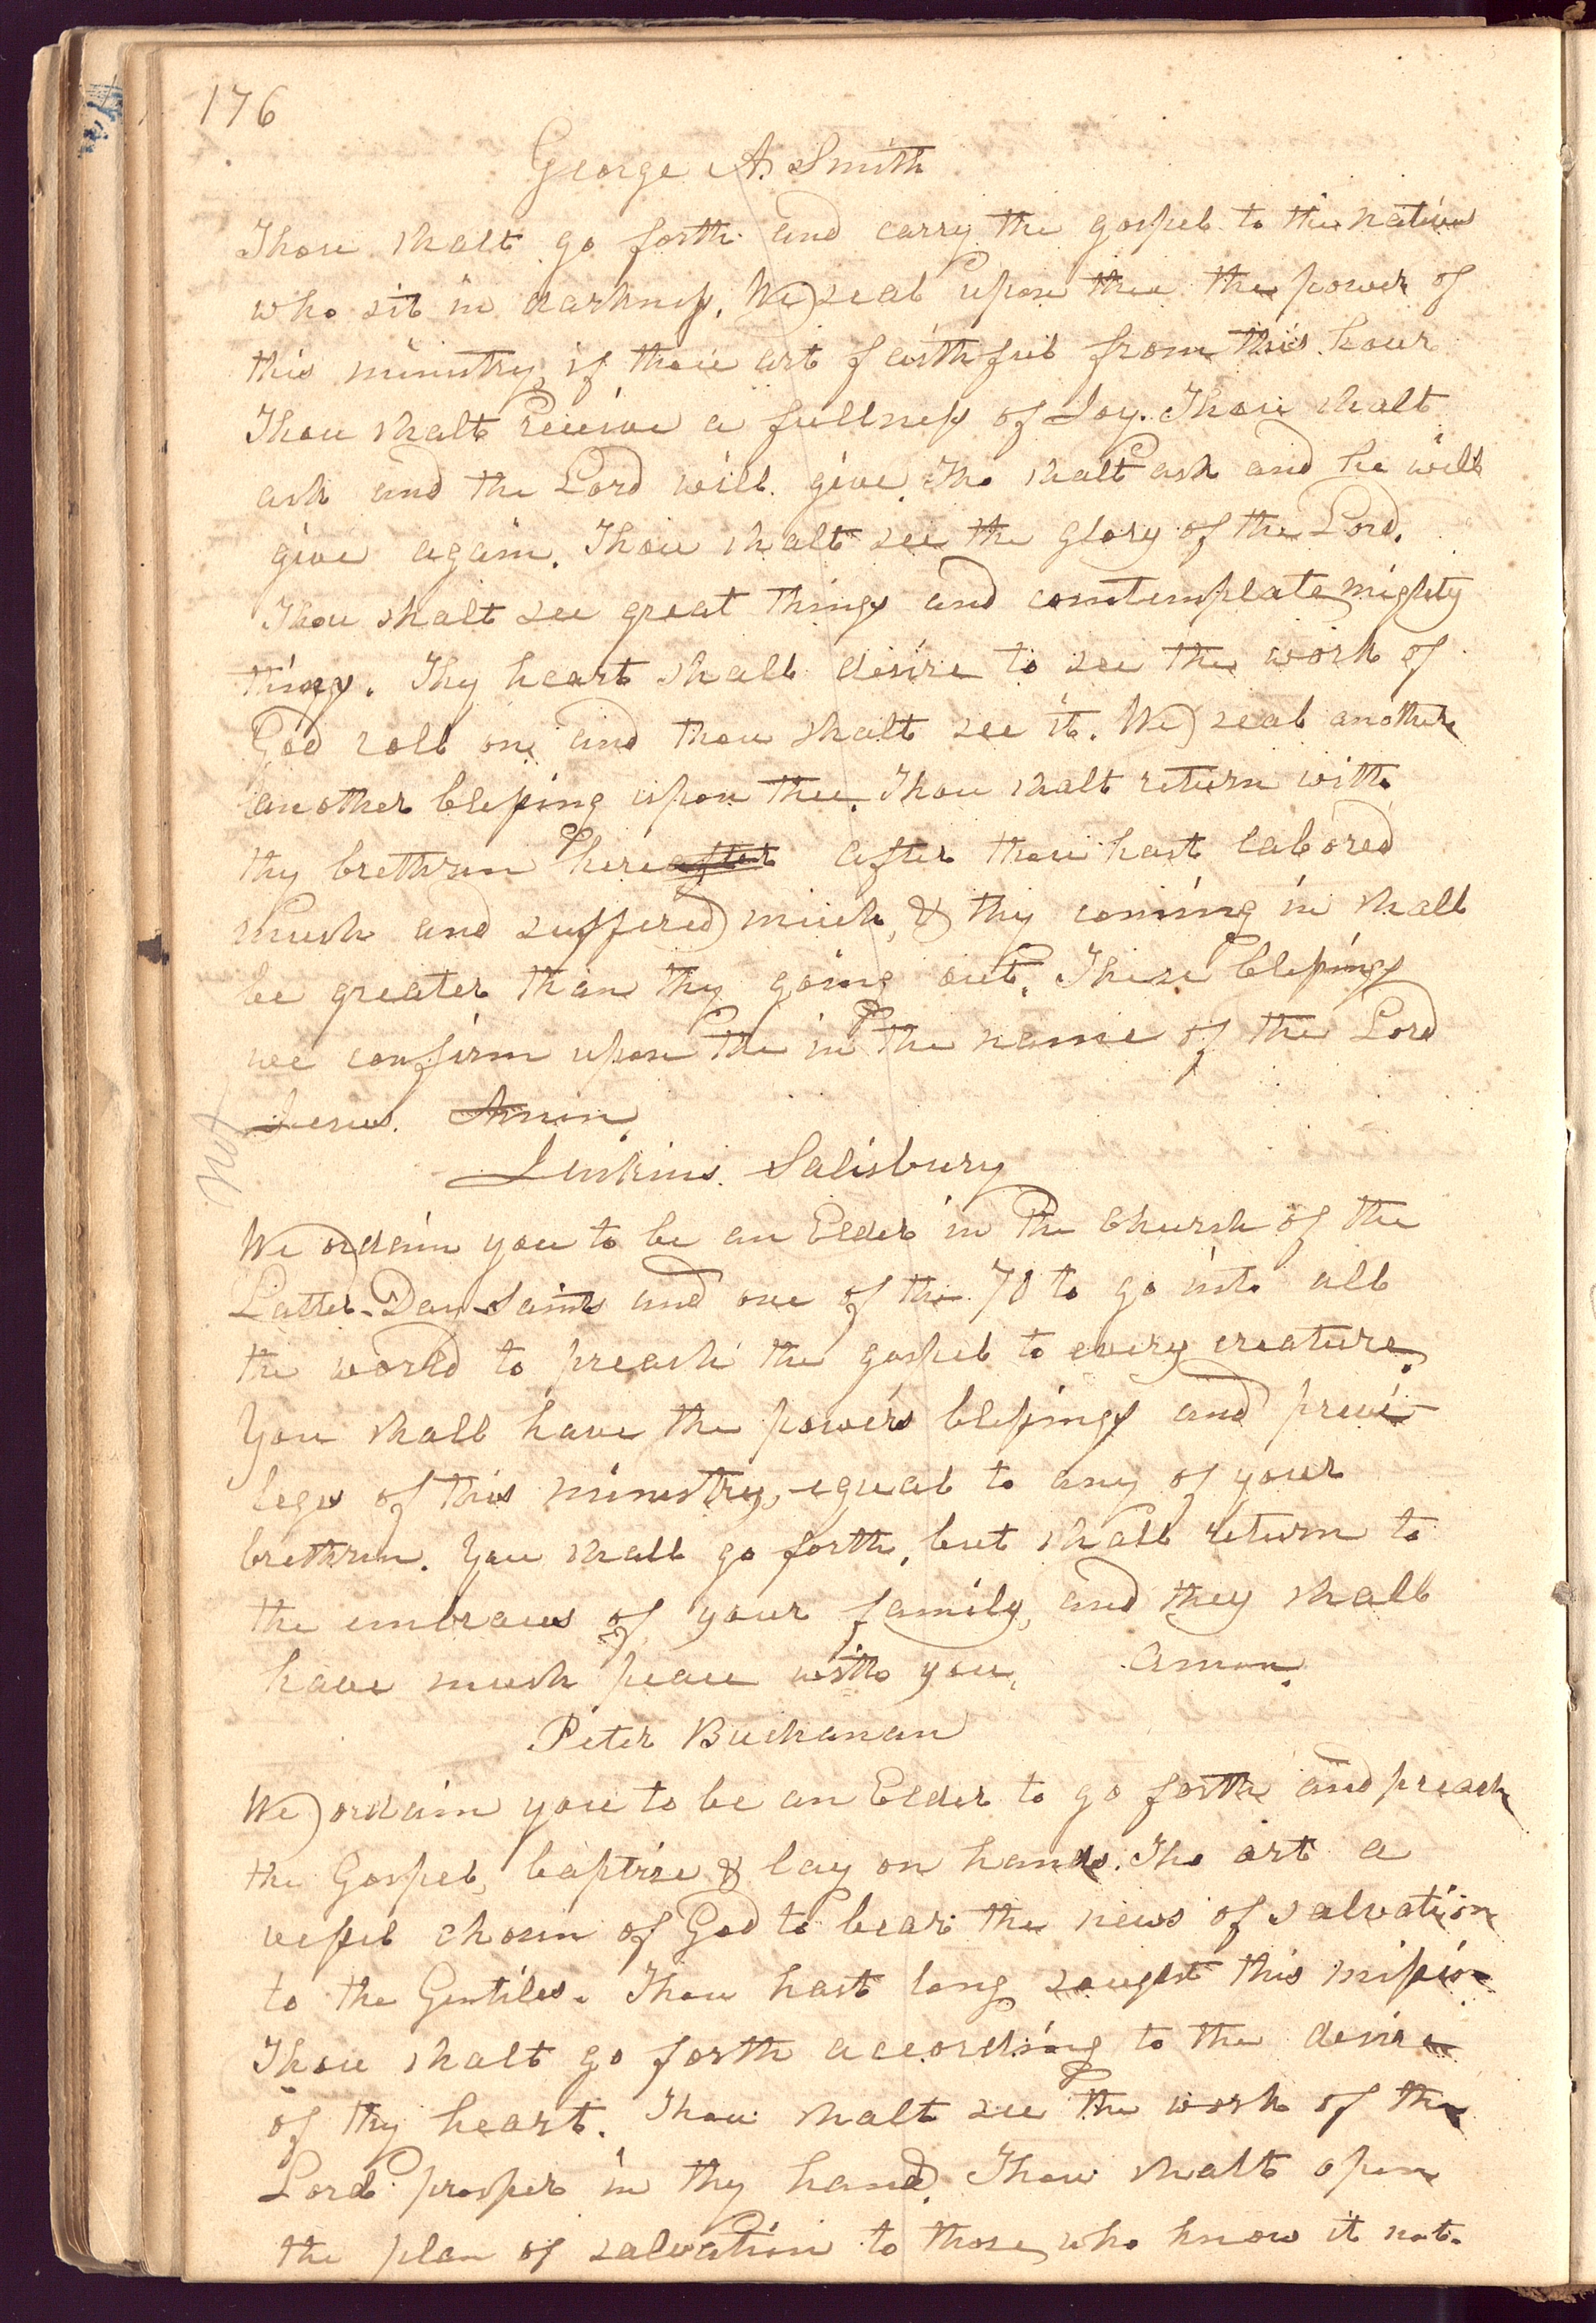 176
George A. Smith
Thou shalt go forth and carry the gospel to the nations
who sit in darkness. We seal upon thee the power of
this ministry, if thou art faithful from this hour
Thou shalt receive a fullness of Joy. Thou shalt
ask and the Lord will give, tho shalt ask and he will
give again. Thou shalt see the glory of the Lord.
Thou shalt see great things and comtemplate mighty
things. Thy heart shall desire to see the work of
God roll on, and thou shalt see it. We seal another
another blessing upon thee. Thou shalt return with
thy brethren hereafter after thou hast labored
much and suffered much, & thy coming in shall
be greater than thy going out. These blessings
we confirm upon the in the name of the Lord
Jesus. Amen.
Jenkins. Salisbury
We ordain you to be an Elder in the Church of the
Latter-Day-Saints and one of the 70 to go into all
the world to preach the gospel to every creature.
You shall have the powers blessings and previ-
leges of this ministry, equal to any of your
brethren. You shall go forth, but shall return to
the embraces of your family, and they shall
have much peace with you, Amen.
Peter Buchanan
We ordain you to be an Elder to go forth and preach
the Gospel, baptise & lay on hands. Tho art a
vessel chosen of God to bear the news of salvation
to the Gentiles. Thou hast long sought this mission
Thou shalt go forth according to the desire
of thy heart. Thou shalt see the work of the
Lord prosper in thy hand. Thou shalt open
the plan of salvation to those who know it not.